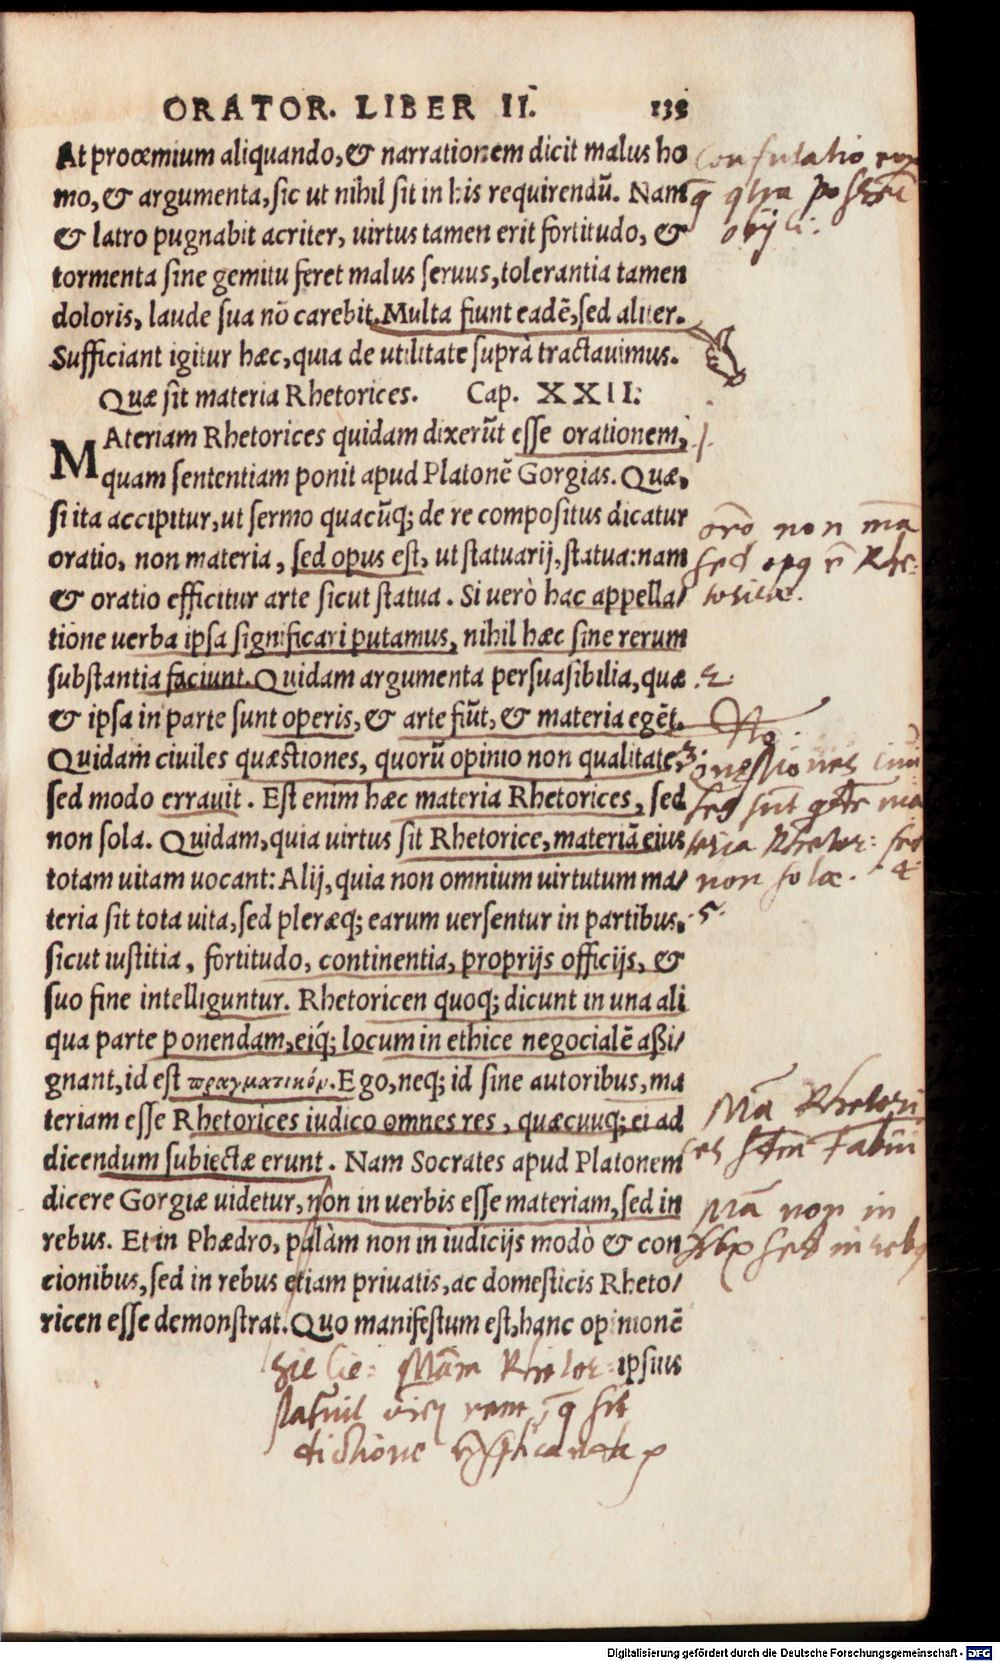 ORATOR. LIBER II. 135
At proœmium aliquando, & narrationem dicit malus ho
mo, & argumenta, sic ut nihil sit in his requirendū. Nam
& latro pugnabit acriter, uirtus tamen erit fortitudo, &
tormenta sine gemitu feret malus seruus, tolerantia tamen
doloris, laude sua nō carebit. Multa fiunt eadē, sed aliter.
Sufficiant igitur hæc, quia de utilitate suprà tractauimus.
Quæ sit materia Rhetorices. Cap. XXII:
MAteriam Rhetorices quidam dixerūt esse orationem,
quam sententiam ponit apud Platonē Gorgias. Quæ,
si ita accipitur, ut sermo quacūq; de re compositus dicatur
oratio, non materia, sed opus est, ut statuarij, statua: nam
& oratio efficitur arte sicut statua. Si uerò hac appella/
tione uerba ipsa significari putamus, nihil hæc sine rerum
substantia faciunt. Quidam argumenta persuasibilia, quæ
& ipsa in parte sunt operis, & arte fiūt, & materia egēt.
Quidam ciuiles quæstiones, quorū opinio non qualitate,
sed modo errauit. Est enim hæc materia Rhetorices, sed
non sola. Quidam, quia uirtus sit Rhetorice, materiā eius
totam uitam uocant: Alij, quia non omnium uirtutum ma/
teria sit tota uita, sed pleræq; earum uersentur in partibus,
sicut iustitia, fortitudo, continentia, proprijs officijs, &
suo fine intelliguntur. Rhetoricen quoq; dicunt in una ali
qua parte ponendam, eiq́; locum in ethice negocialē aßi/
gnant, id est πραγματικόν. Ego, neq; id sine autoribus, ma
teriam esse Rhetorices iudico omnes res, quæcuuq; ei ad
dicendum subiectæ erunt. Nam Socrates apud Platonem
dicere Gorgiæ uidetur, non in uerbis esse materiam, sed in
rebus. Et in Phædro, palàm non in iudicijs modò & con
cionibus, sed in rebus etiam priuatis, ac domesticis Rheto/
ricen esse demonstrat. Quo manifestum est, hanc opinionē
ipsius
Confutatio
obijci.
1.
oro non mā
sed opq ē Rhe-
toricæ.
.2.
No.
3.
Quæstiones
non solæ. 4
.5.
Mā Rhetori
ces Fabiū
Mā non in
sed in rebq